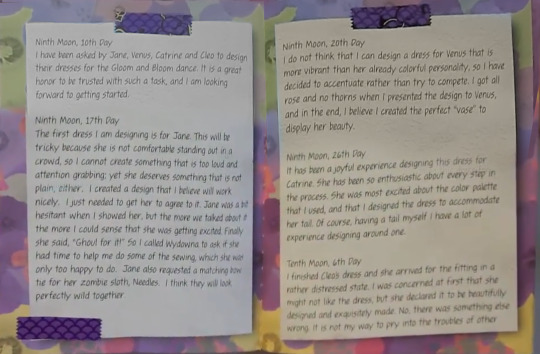 Ninth Moon, 10th Day
I have been asked by Jane, Venus, Catrine and Cleo to design
their dresses for the Gloom and Bloom dance. It is a great
honor to be trusted with such a task, and I am looking
forward to getting started.
Ninth Moon, 17th Day
The first dress I am designing is for Jane. This will be
tricky because she is not comfortable standing out in a
crowd, so I cannot create something that is too loud and
attention grabbing; yet she deserves something that is not
plain, either. I created a design that I believe will work
nicely. I just needed to get her to agree to it. Jane was a bit
hesitant when I showed her, but the more we talked about it
the more I could sense that she was getting excited. Finally
she said, "Ghoul for it!" So I called Wydowna to ask if she
had time to help me do some of the sewing, which she was
only too happy to do. Jane also requested a matching bow
tie for her zombie sloth, Needles. I think they will look
perfectly wild together
Ninth Moon, 20th Day
I do not think that I can design a dress for Venus that is
more vibrant than her already colorful personality, so I have
decided to accentuate rather than try to compete. I got all
rose and no thorns when I presented the design to Venus,
and in the end, I believe I created the perfect "vase" to
display her beauty.
Ninth Moon, 26th Day
It has been a joyful experience designing this dress for
Catrine. She has been so enthusiastic about every step in
the process. She was most excited about the color palette
that I used, and that I designed the dress to accommodate
her tail. Of course, having a tail myself I have a lot of
experience designing around one.
Tenth Moon, 6th Day
I finished Cleo's dress and she arrived for the fitting in a
rather distressed state. I was concerned at first that she
might not like the dress, but she declared it to be beautifully
designed and exquisitely made. No, there was something else
wrong. It is not my way to pry into the troubles of other